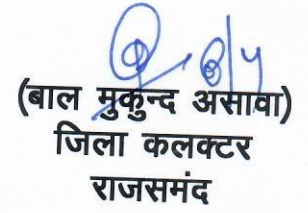 (बाल मुकुन्द असावा)
जिला कलक्टर
राजसमंद